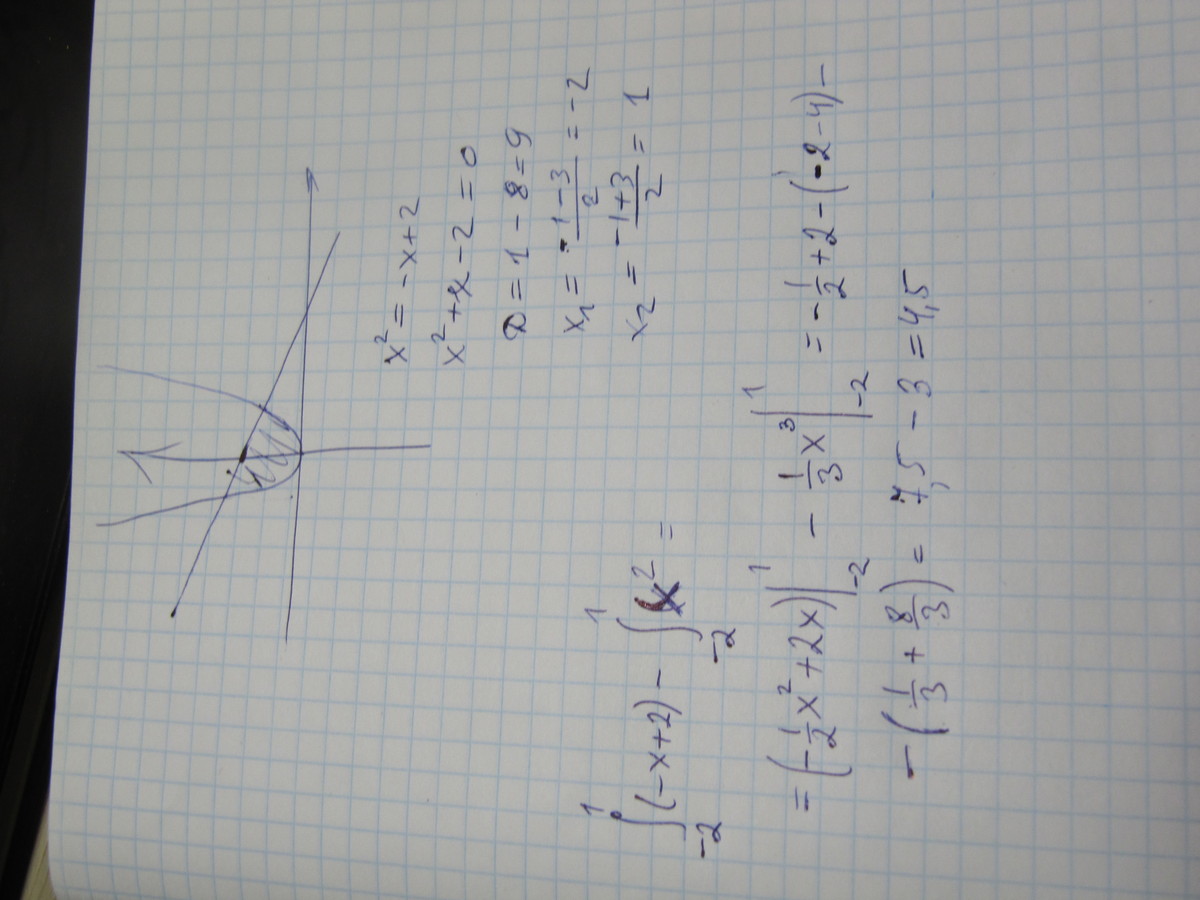 x² = -x+2
x²+x-2=0
D=1-8=9
x₁ = -1-3/2 = -2
x₂ = -1+3/2 = 1
∫₋₂¹ (-x+2) - ∫₋₂¹ x² =
= (-1/2 x² + 2x)|₋₂¹ - 1/3 x³|₋₂¹ = -1/2+2-(-2-4)-
-(1/3+8/3) = 7,5-3=4,5